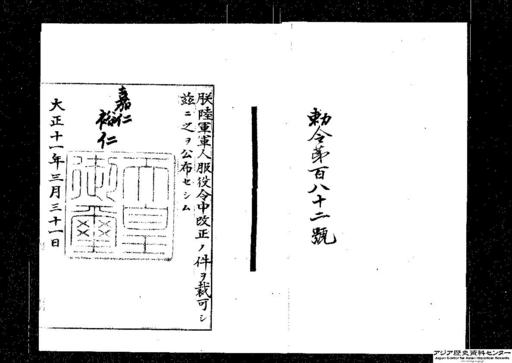 勅令第百八十二號
朕陸軍軍人服役令中改正ノ件ヲ裁可シ
玆ニ之ヲ公布セシム
嘉仁
裕仁
天皇御璽
大正十一年三月三十一日
アジア歴史資料センター
Japan Center for Asian Historical Records